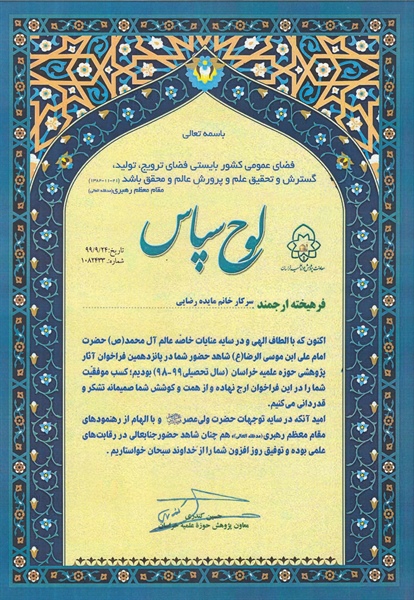 باسمه تعالی
فضای عمومی کشور بایستی فضای ترویج، تولید،
گسترش و تحقیق علم و پرورش عالم و محقق باشد
مقام معظم رهبری (مدظله العالی)
لوح سپاس
تاریخ: ۹۹/۹/۲۴
شماره: ۱۰۸۲۴۳۳
فرهیخته ارجمند سرکار خانم مایده رضایی
اکنون که با الطاف الهی و در سایه عنایات خاصه عالم آل محمد(ص) حضرت
امام علی ابن موسی الرضا(ع) شاهد حضور شما در پانزدهمین فراخوان آثار
پژوهشی حوزه علمیه خراسان (سال تحصیلی ۹۹-۹۸) بودیم؛ کسب موفقیت
شما را در این فراخوان ارج نهاده و از همت و کوشش شما صمیمانه تشکر و
قدردانی می‌کنیم.
امید آنکه در سایه توجهات حضرت ولی‌عصر و با الهام از رهنمودهای
مقام معظم رهبری (مدظله العالی) هم چنان شاهد حضور جنابعالی در رقابت‌های
علمی بوده و توفیق روز افزون شما را از خداوند سبحان خواستاریم.
حسین
معاون پژوهش حوزه علمیه خراسان